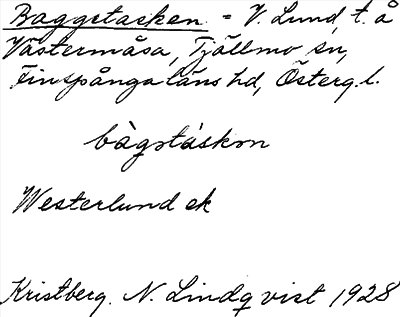 Baggetasken = V. Lund, t. å
Västermåsa, Tjällmo sn,
Finspånga läns hd, Österg. l.
bàgstáskon
Westerlund ek
Kristberg. N. Lindqvist 1928